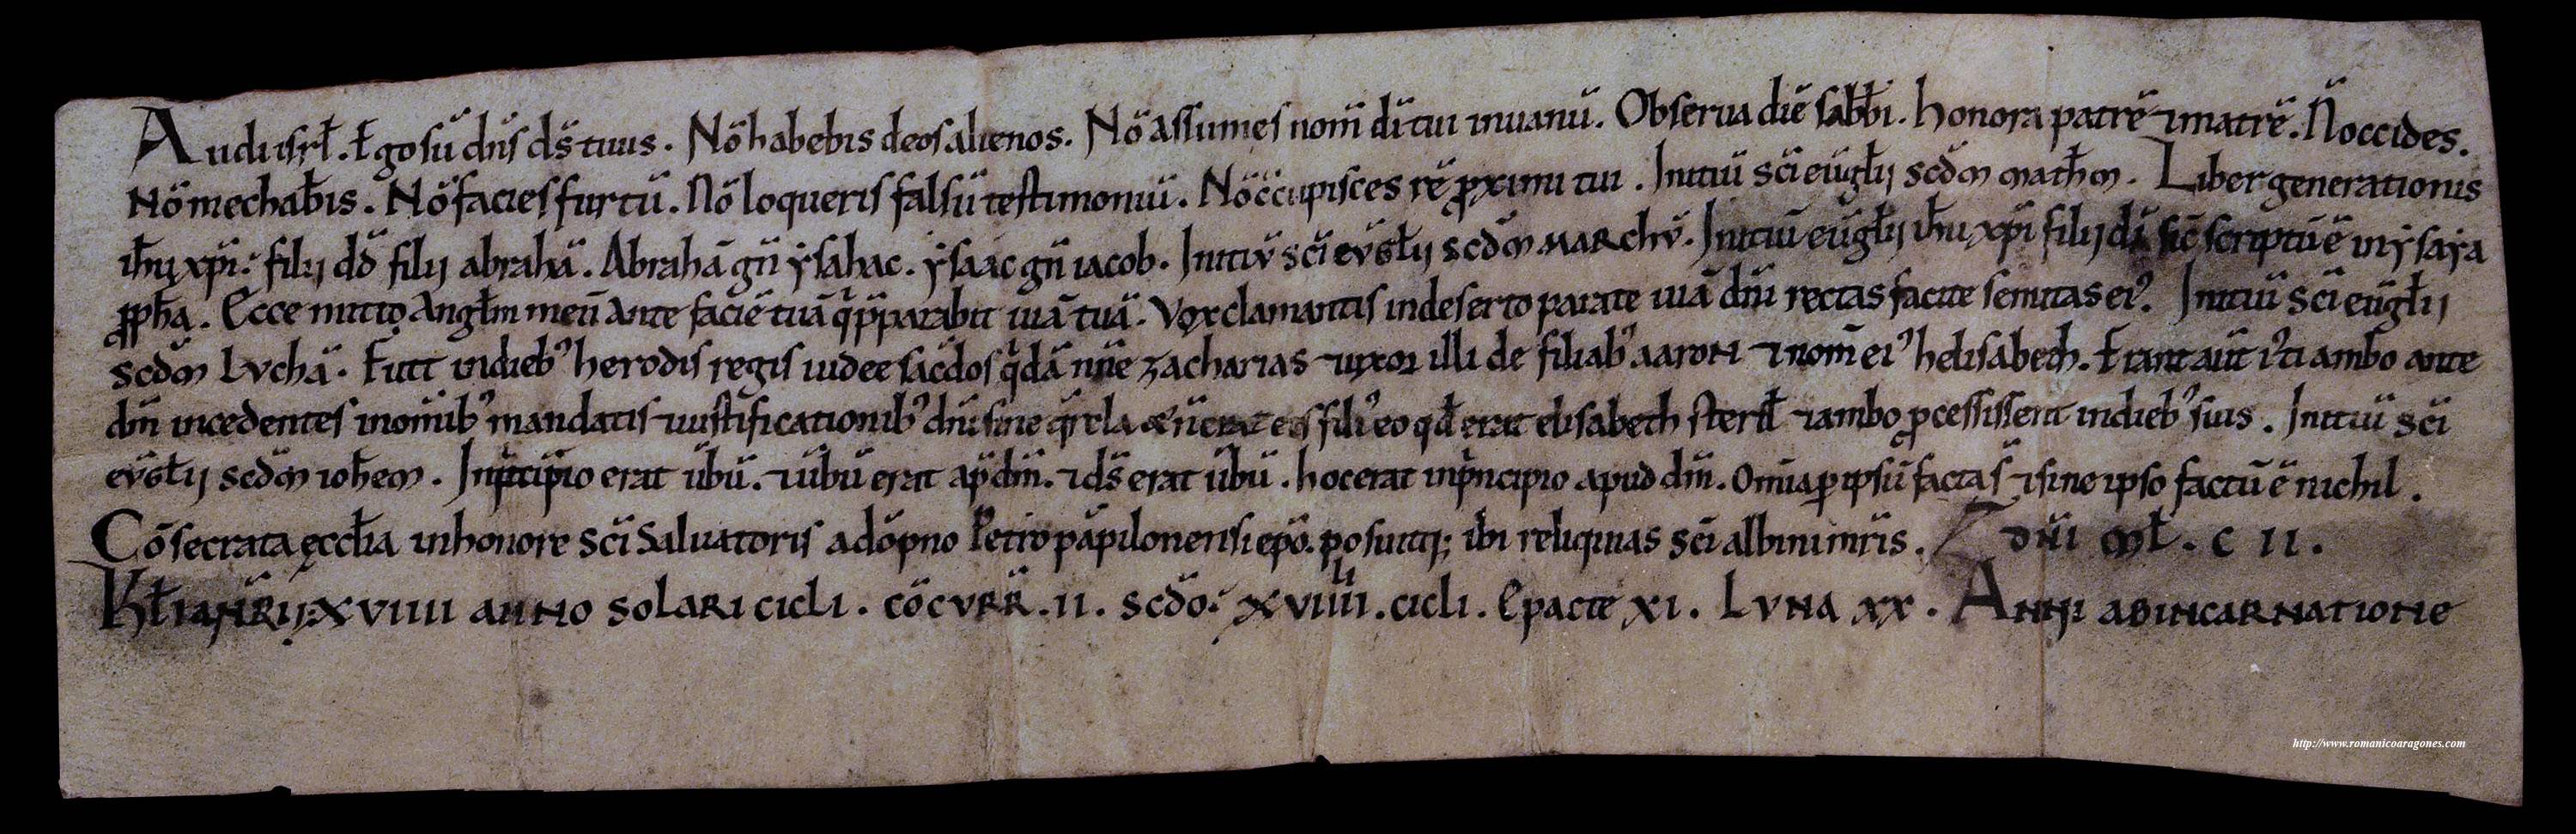 Audi isrł. Ego sū dn̄s ds̄ tuus. Nō habebis deos alienos. Nō assumes nom̄ dī tui in uanū. Obserua diē sabb̄i. honora patrē ⁊ matrē. N̄ occides.
Nō mechab̄is. Nō facies furtū. Nō loqueris falsū testimoniū. Nō c̄cupisces rē ꝓximi tui. Initiū sc̄i eūgłij scd̄m math̄m. Liber generationis
ih̄u xp̄i: filij dd̄ filij abrahā. Abrahā gn̄ ysahac. ysaac gn̄ iacob. Initiū sc̄i evḡłij scd̄m marchū. Initiū eūgłij ih̄u xp̄i filij dī sic̄ scriptū ē in ysaya
ꝓph̄a. Ecce mitto Angłm meū ante faciē tuā q̄ p̄parabit uiā tuā. Vox clamantis in deserto parate uiā dn̄i rectas facite semitas eiꝰ. Initiū sc̄i eūgłij
scd̄m Luchā. Fuit in diebꝰ herodis regis iudee sac̄dos q̄dā nn̄e zacharias ⁊ uxor illi de filiabꝰ aaron ⁊ nom̄ eiꝰ helisabeth. Erant aūt iꝰti ambo ante
dm̄ incedentes in om̄ibꝰ mandatis ⁊ iustificationibꝰ dn̄i sine q̄rela & n̄ erat eis filiꝰ eo qđ erat elisabeth sterił ⁊ ambo ꝓcessissent in diebꝰ suis. Initiū sc̄i
evḡłij scd̄m ioh̄em. In p̄ncipio erat ūbū. ⁊ ūbū erat ap̄ dm̄. ⁊ ds̄ erat ūbū. hoc erat in p̄ncipio apud dm̄. Om̄ia ꝑ ipsū facta s̄ ⁊ sine ipso factū ē nichil.
Cōsecrata ęcclīa in honore sc̄i Saluatoris a dōpno Petro pāpilonensi ep̄o. posuitq; ibi reliquias sc̄i albini mr̄is. dn̄i mł. c ii.
Kł ianr̄ij: xviiii anno solari cicli. cōcurr̄. ii. scd̄o: xviiii. cicli. Epacte xi. Luna xx. Anni ab incarnatione
http://www.romanicoaragones.com